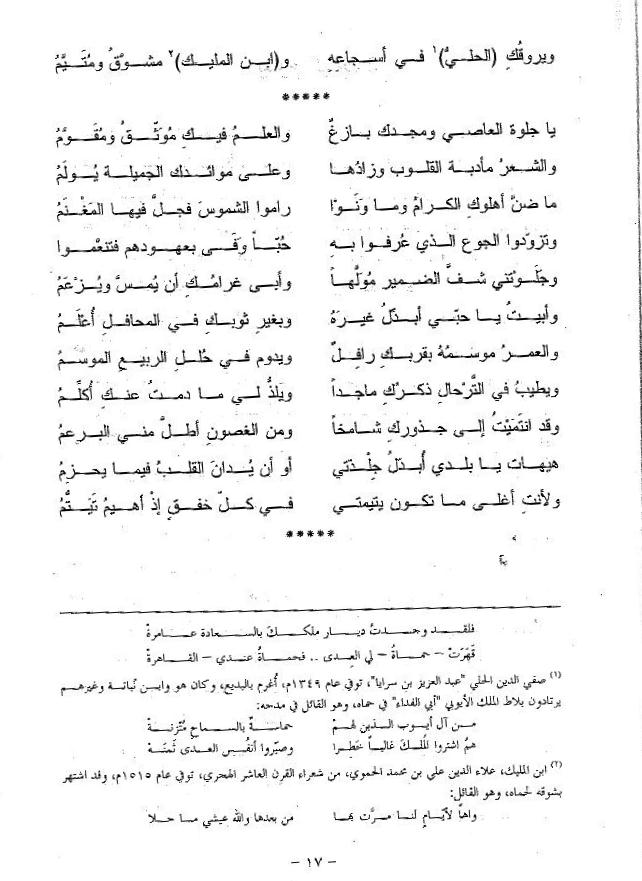 ويروقُكِ (الحليُّ)١ في أسجاعهِ و(ابن المليك)٢ مشوَّقٌ ومُتَيَّمُ
*****
يا جلوة العاصي ومجدك بازغٌ والعلمُ فيكِ مُوَثّقٌ ومُقَوَّمُ
والشعرُ مأدبة القلوب وزادُها وعلى موائدك الجميلة يُولَمُ
ما ضنَّ أهلوكِ الكرامُ وما وَنَوْا راموا الشموسَ فجلَّ فيها المَغْنَمُ
وتزوّدوا الجوع الذي عُرفوا بهِ حُبّاً وَفَى بعهودهم فتنعّموا
وجَلَوْتني شفَّ الضمير مُولَّهاً وأبى غرامُكِ أن يُمسَّ ويُزْعَمُ
وأبيتُ يا حبّي أبدّلُ غيرَهُ وبغير ثوبكِ في المحافلِ أُعْلَمُ
والعمرُ موسمُهُ بقربكِ رافلٌ ويدوم في حُللِ الربيع الموسمُ
ويطيبُ في التَّرحالِ ذكرُكِ ماجداً ويَلذُّ لي ما دمتُ عنكِ أُكلِّمُ
وقد انتمَيْتُ إلى جذوركِ شامخاً ومن الغصونِ أطلَّ مني البرعمُ
هيهات يا بلدي أُبدّل جِلْدتي أو أن يُدانَ القلبُ فيما يحزمُ
ولأنتِ أغلى ما تكون يتيمتي في كلّ خفقٍ إذْ أهيمُ تَيَتُّمُ
*****
فلقد وجدتُ ديار ملككَ بالسعادة عامرةْ
قَهَرَتْ - حماةُ - لي العِدى .. فحماةُ عندي - القاهرةْ
(١) صفي الدين الحلي "عبد العزيز بن سرايا"، توفي عام ١٣٤٩م، أُغرم بالبديع، وكان هو وابن نُباتة وغيرهم
يرتادون بلاط الملك الأيوبي "أبي الفداء" في حماه، وهو القائل في مدحه:
من آل أيوب الذين لهمْ حماسةٌ بالسماحِ مُتّزنةْ
همُ اشتروا المُلكَ غالياً خَطِرا وصيّروا أنفُسَ العدى ثَمنَهْ
(٢) ابن المليك، علاء الدين علي بن محمد الحموي، من شعراء القرن العاشر الهجري، توفي عام ١٥١٥م، وقد اشتهر
بشوقه لحماه، وهو القائل:
واهاً لأيّامٍ لنا مرَّت بها من بعدها والله عيشي ما حلا
- ١٧ -